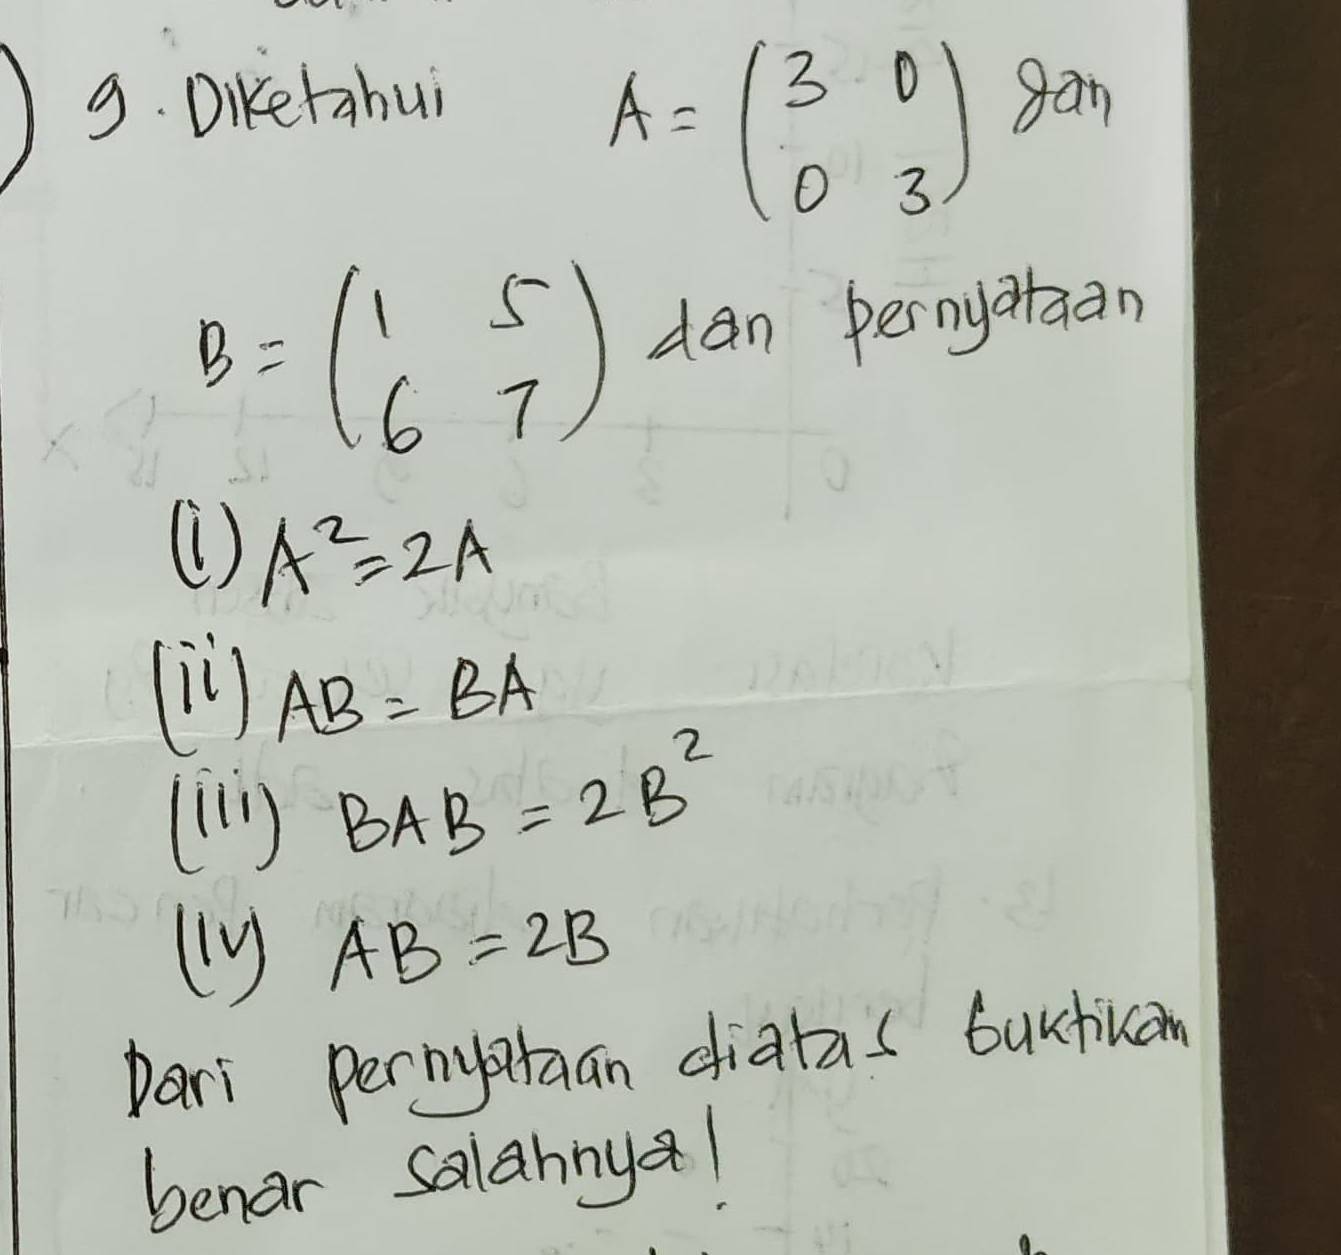 9. Diketahui A = (3 0
0 3) dan
B = (1 5
6 7) dan pernyataan
(i) A² = 2A
(ii) AB = BA
(iii) BAB = 2B²
(iv) AB = 2B
Dari pernyataan diatas buktikan
benar salahnya!